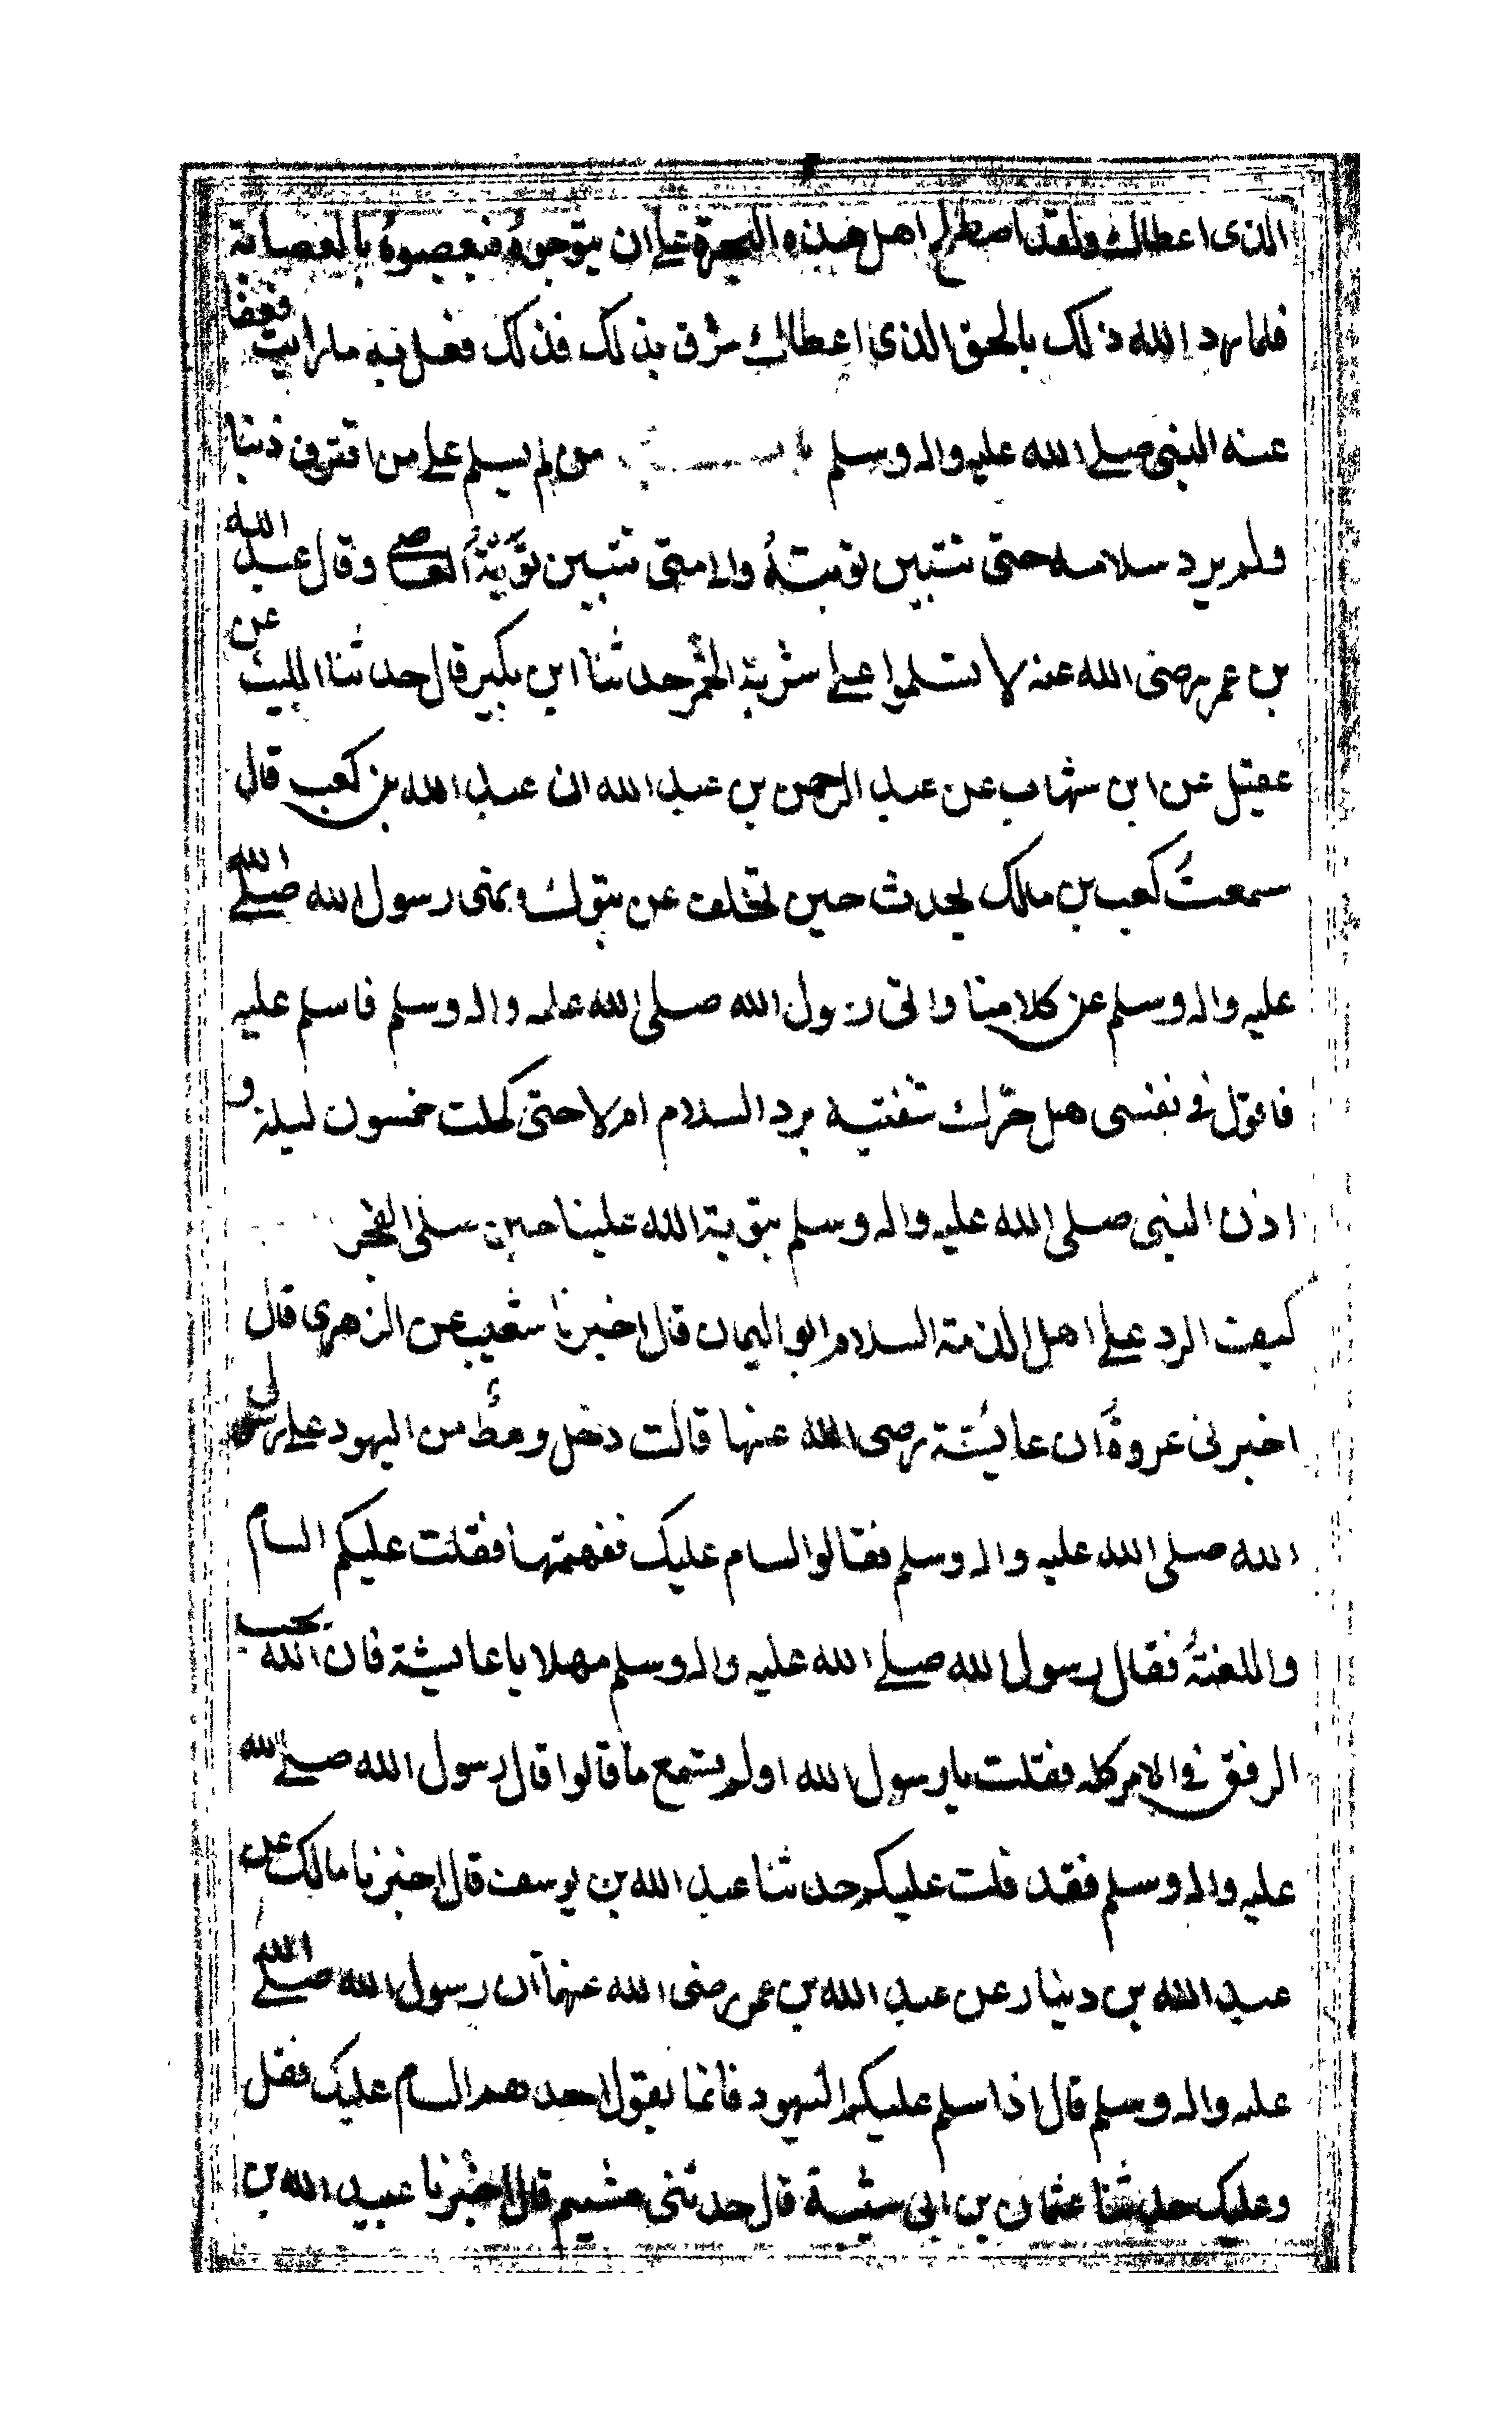 الذى اعطاك ولقد اصطلح اهل هذه البحرة على ان يتوجوه فيعصبوه بالعصابة
فلما رد الله ذلك بالحق الذى اعطاك شرق بذلك فذلك فعل به ما رايت فعفا
عنه النبى صلى الله عليه واله وسلم من لم يسلم على من اقترف ذنبا
ولم يرد سلامه حتى تتبين توبته والا متى تتبين توبة العاصى وقال عبد الله
بن عمر رضى الله عنه لا تسلموا على شربة الخمر حدثنا ابن بكير قال حدثنا الليث عن
عقيل عن ابن شهاب عن عبد الرحمن بن عبد الله ان عبد الله بن كعب قال
سمعت كعب بن مالك يحدث حين تخلف عن تبوك ونهى رسول الله صلى الله
عليه واله وسلم عن كلامنا واتى رسول الله صلى الله عليه واله وسلم فاسلم عليه
فاقول فى نفسى هل حرك شفتيه برد السلام ام لا حتى كملت خمسون ليلة و
اذن النبى صلى الله عليه واله وسلم بتوبة الله علينا حين صلى الفجر
كيف الرد على اهل الذمة السلام ابو اليمان قال اخبرنا شعيب عن الزهرى قال
اخبرنى عروة ان عايشة رضى الله عنها قالت دخل رهط من اليهود على رسول
الله صلى الله عليه واله وسلم فقالوا السام عليك ففهمتها فقلت عليكم السام
واللعنة فقال رسول الله صلى الله عليه واله وسلم مهلا يا عايشة فان الله يحب
الرفق فى الامر كله فقلت يا رسول الله اولم يستمع ما قالوا قال رسول الله صلى الله
عليه واله وسلم فقد قلت عليكم حدثنا عبد الله بن يوسف قال اخبرنا مالك عن
عبد الله بن دينار عن عبد الله بن عمر رضى الله عنهما ان رسول الله صلى الله
عليه واله وسلم قال اذا سلم عليكم اليهود فانما يقول احدهم السام عليك فقل
وعليك حدثنا عثمان بن ابى شيبة قال حدثنى هشيم قال اخبرنا عبيد الله بن